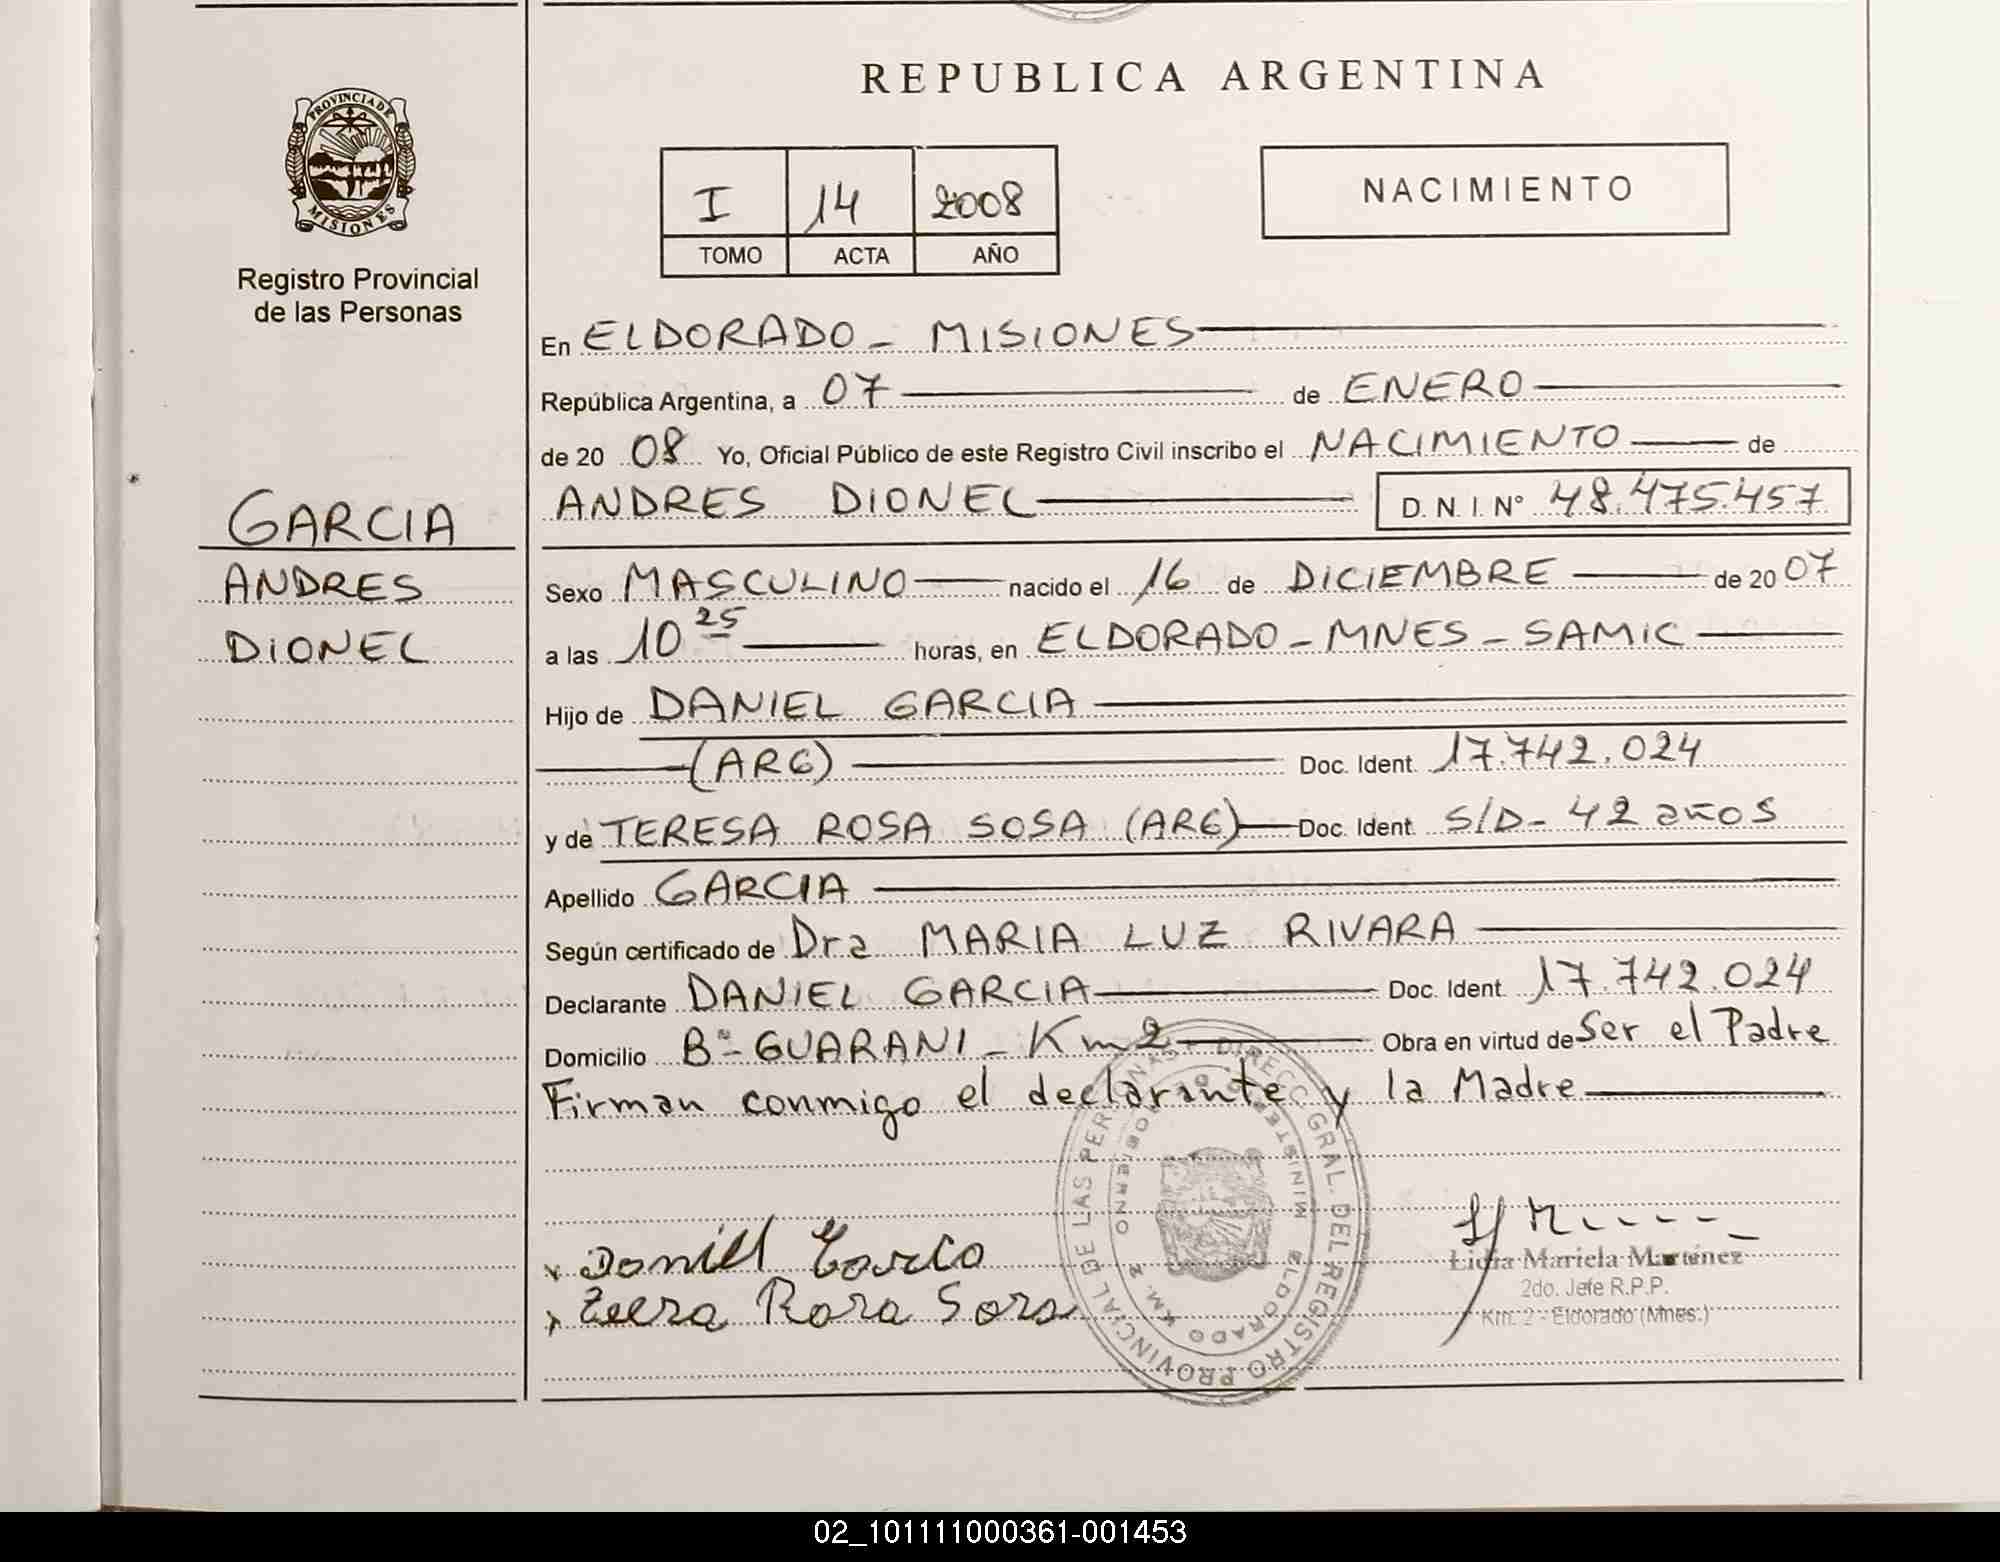 REPUBLICA ARGENTINA
PROVINCIA DE
MISIONES
Registro Provincial
de las Personas
I 14 2008
TOMO ACTA AÑO
NACIMIENTO
En ELDORADO - MISIONES
República Argentina, a 07 de ENERO
de 20 08 Yo, Oficial Público de este Registro Civil inscribo el NACIMIENTO de
GARCIA
ANDRES
DIONEL
ANDRES DIONEL D. N. I. Nº 48.475.457
Sexo MASCULINO nacido el 16 de DICIEMBRE de 20 07
a las 10 25 horas, en ELDORADO - MNES - SAMIC
Hijo de DANIEL GARCIA
(ARG) Doc. Ident. 17.742.024
y de TERESA ROSA SOSA (ARG) Doc. Ident. S/D - 42 años
Apellido GARCIA
Según certificado de Dra MARIA LUZ RIVARA
Declarante DANIEL GARCIA Doc. Ident. 17.742.024
Domicilio Bº - GUARANI - Km 2 Obra en virtud de Ser el Padre
Firman conmigo el declarante y la Madre
DIREC. GRAL. DEL REGISTRO PROVINCIAL DE LAS PERSONAS
MINISTERIO DE GOBIERNO
KM. 2 ELDORADO
Daniel Garcia
Rosa Sosa
Lidia Mariela Martinez
2do. Jefe R.P.P.
Km. 2 - Eldorado (Mnes.)
02_101111000361-001453